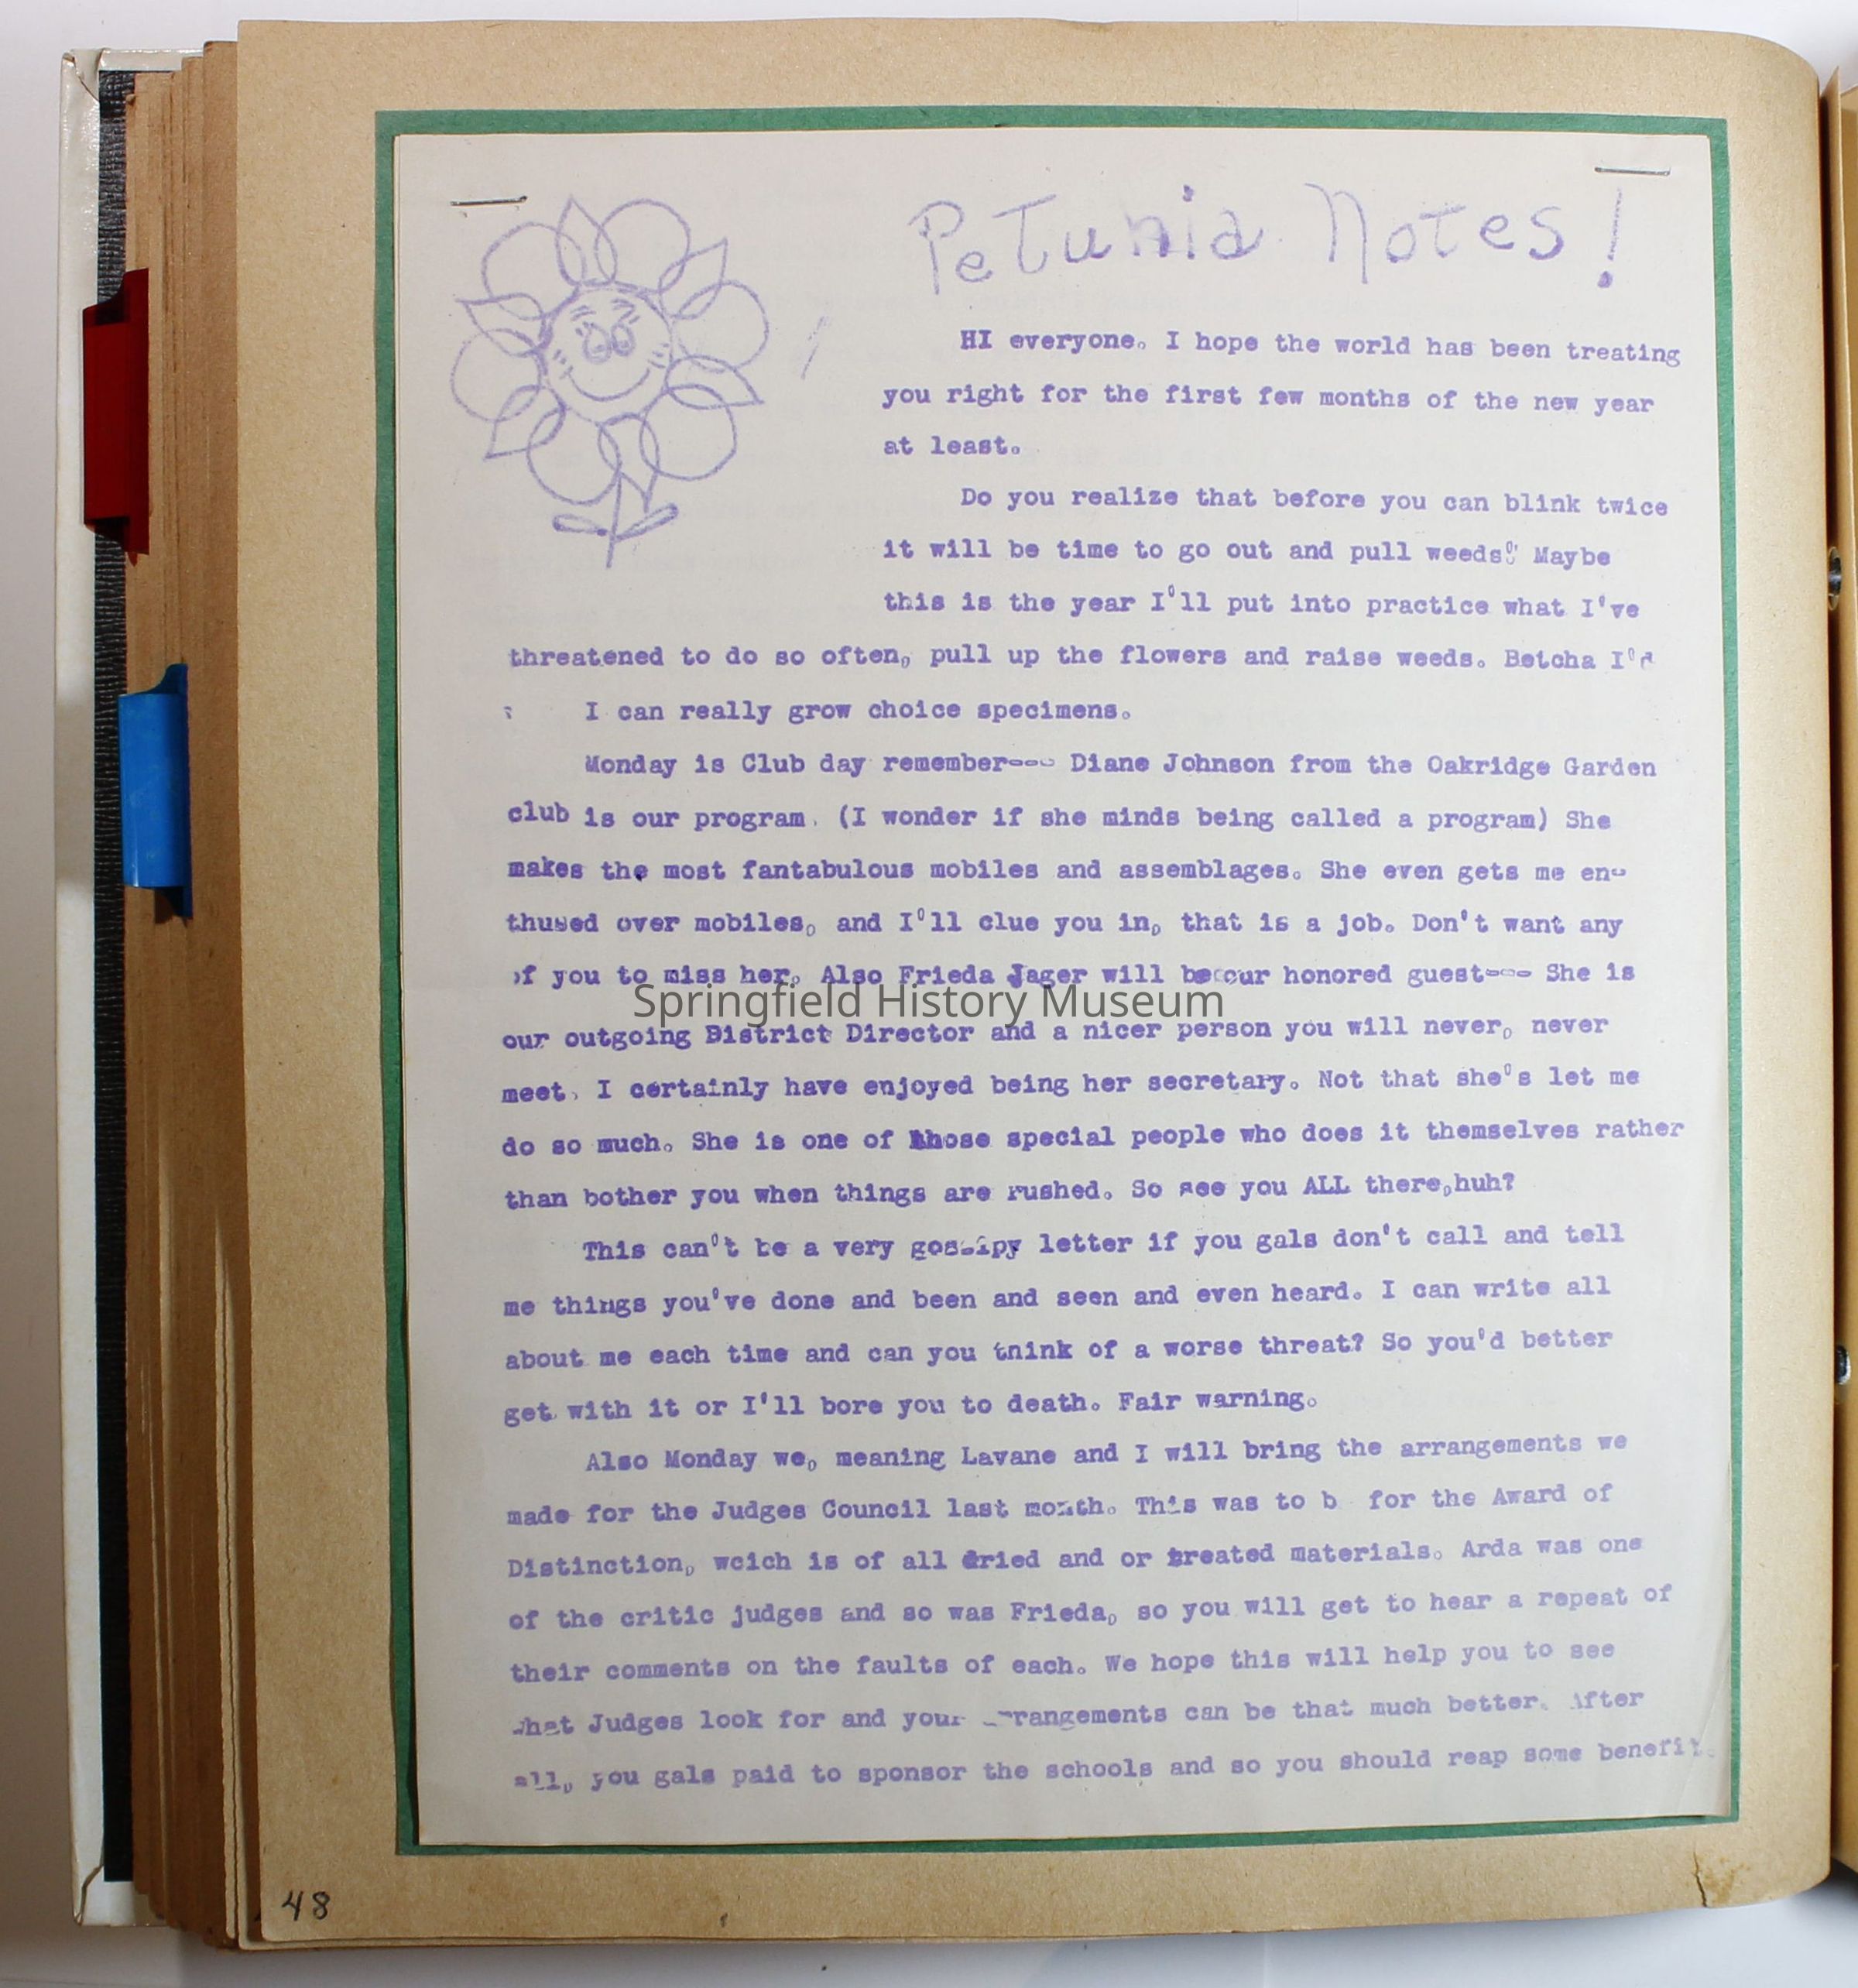 Petunia Notes!
HI everyone. I hope the world has been treating
you right for the first few months of the new year
at least.
Do you realize that before you can blink twice
it will be time to go out and pull weeds? Maybe
this is the year I'll put into practice what I've
threatened to do so often, pull up the flowers and raise weeds. Betcha I'd
I can really grow choice specimens.
Monday is Club day remember--- Diane Johnson from the Oakridge Garden
club is our program. (I wonder if she minds being called a program) She
makes the most fantabulous mobiles and assemblages. She even gets me en-
thused over mobiles, and I'll clue you in, that is a job. Don't want any
of you to miss her. Also Frieda Jager will be our honored guest--- She is
Springfield History Museum
our outgoing District Director and a nicer person you will never, never
meet. I certainly have enjoyed being her secretary. Not that she's let me
do so much. She is one of those special people who does it themselves rather
than bother you when things are rushed. So see you ALL there,huh?
This can't be a very gossipy letter if you gals don't call and tell
me things you've done and been and seen and even heard. I can write all
about me each time and can you think of a worse threat? So you'd better
get with it or I'll bore you to death. Fair warning.
Also Monday we, meaning Lavane and I will bring the arrangements we
made for the Judges Council last month. This was to b for the Award of
Distinction, wcich is of all dried and or treated materials. Arda was one
of the critic judges and so was Frieda, so you will get to hear a repeat of
their comments on the faults of each. We hope this will help you to see
what Judges look for and your arrangements can be that much better. After
all, you gals paid to sponsor the schools and so you should reap some benefit.
48